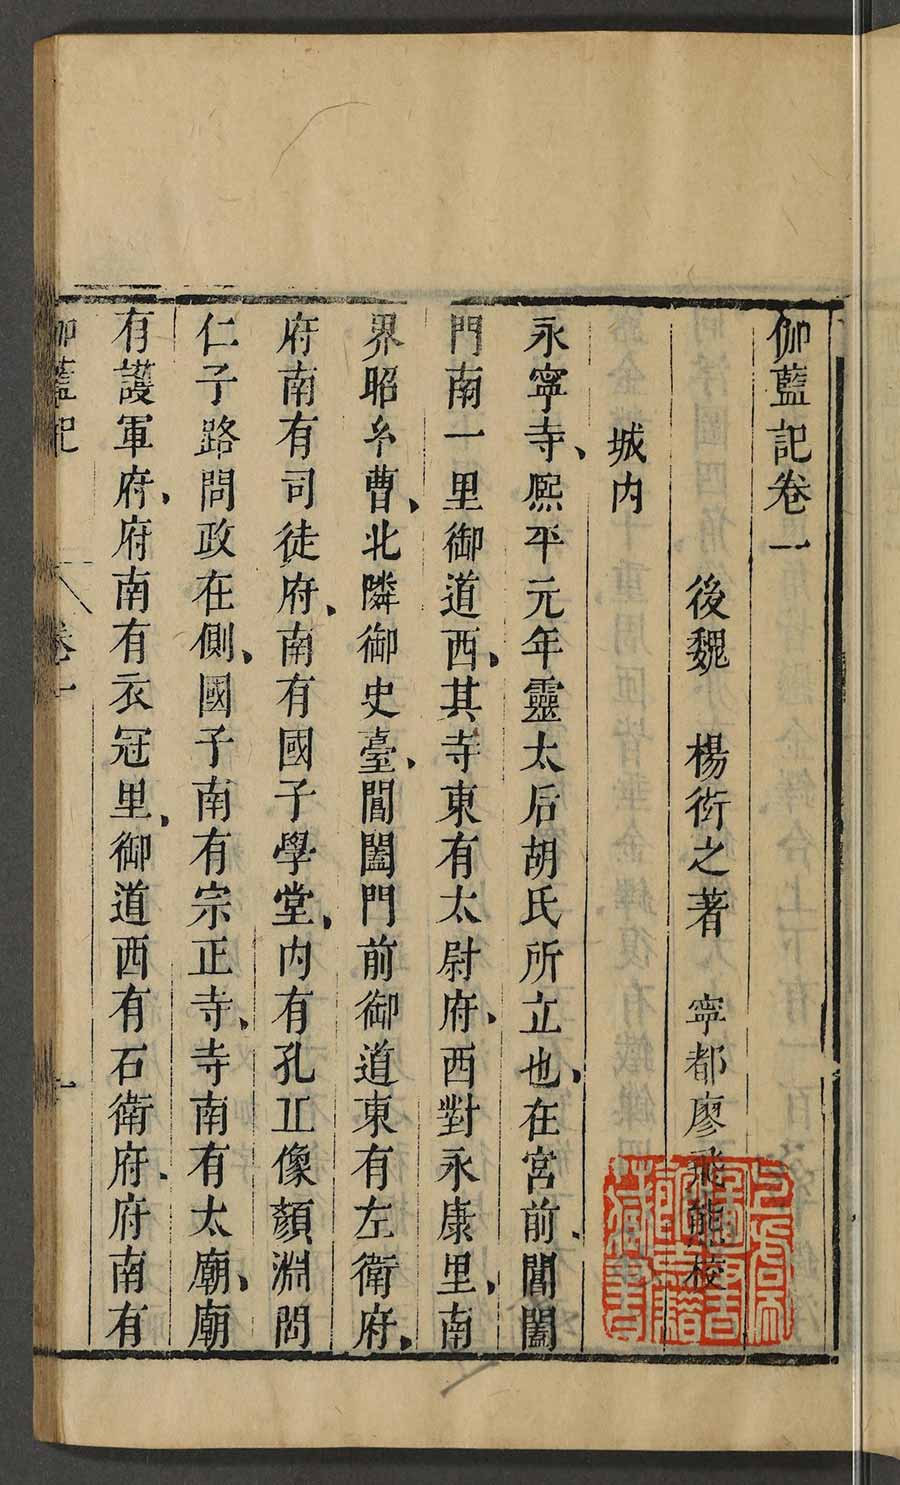 伽藍記卷一
後魏 楊衒之著 寧都廖飛熊校
城内
永寧寺、熈平元年靈太后胡氏所立也、在宮前、閶闔
門南一里御道西、其寺東有太尉府、西對永康里、南
界昭糸曹、北隣御史臺、閶闔門前御道東有左衛府、
府南有司徒府、南有國子學堂、内有孔㐀像顏淵問
仁子路問政在側、國子南有宗正寺、寺南有太廟、廟
有護軍府、府南有衣冠里、御道西有石衛府、府南有
伽藍記 卷一 一